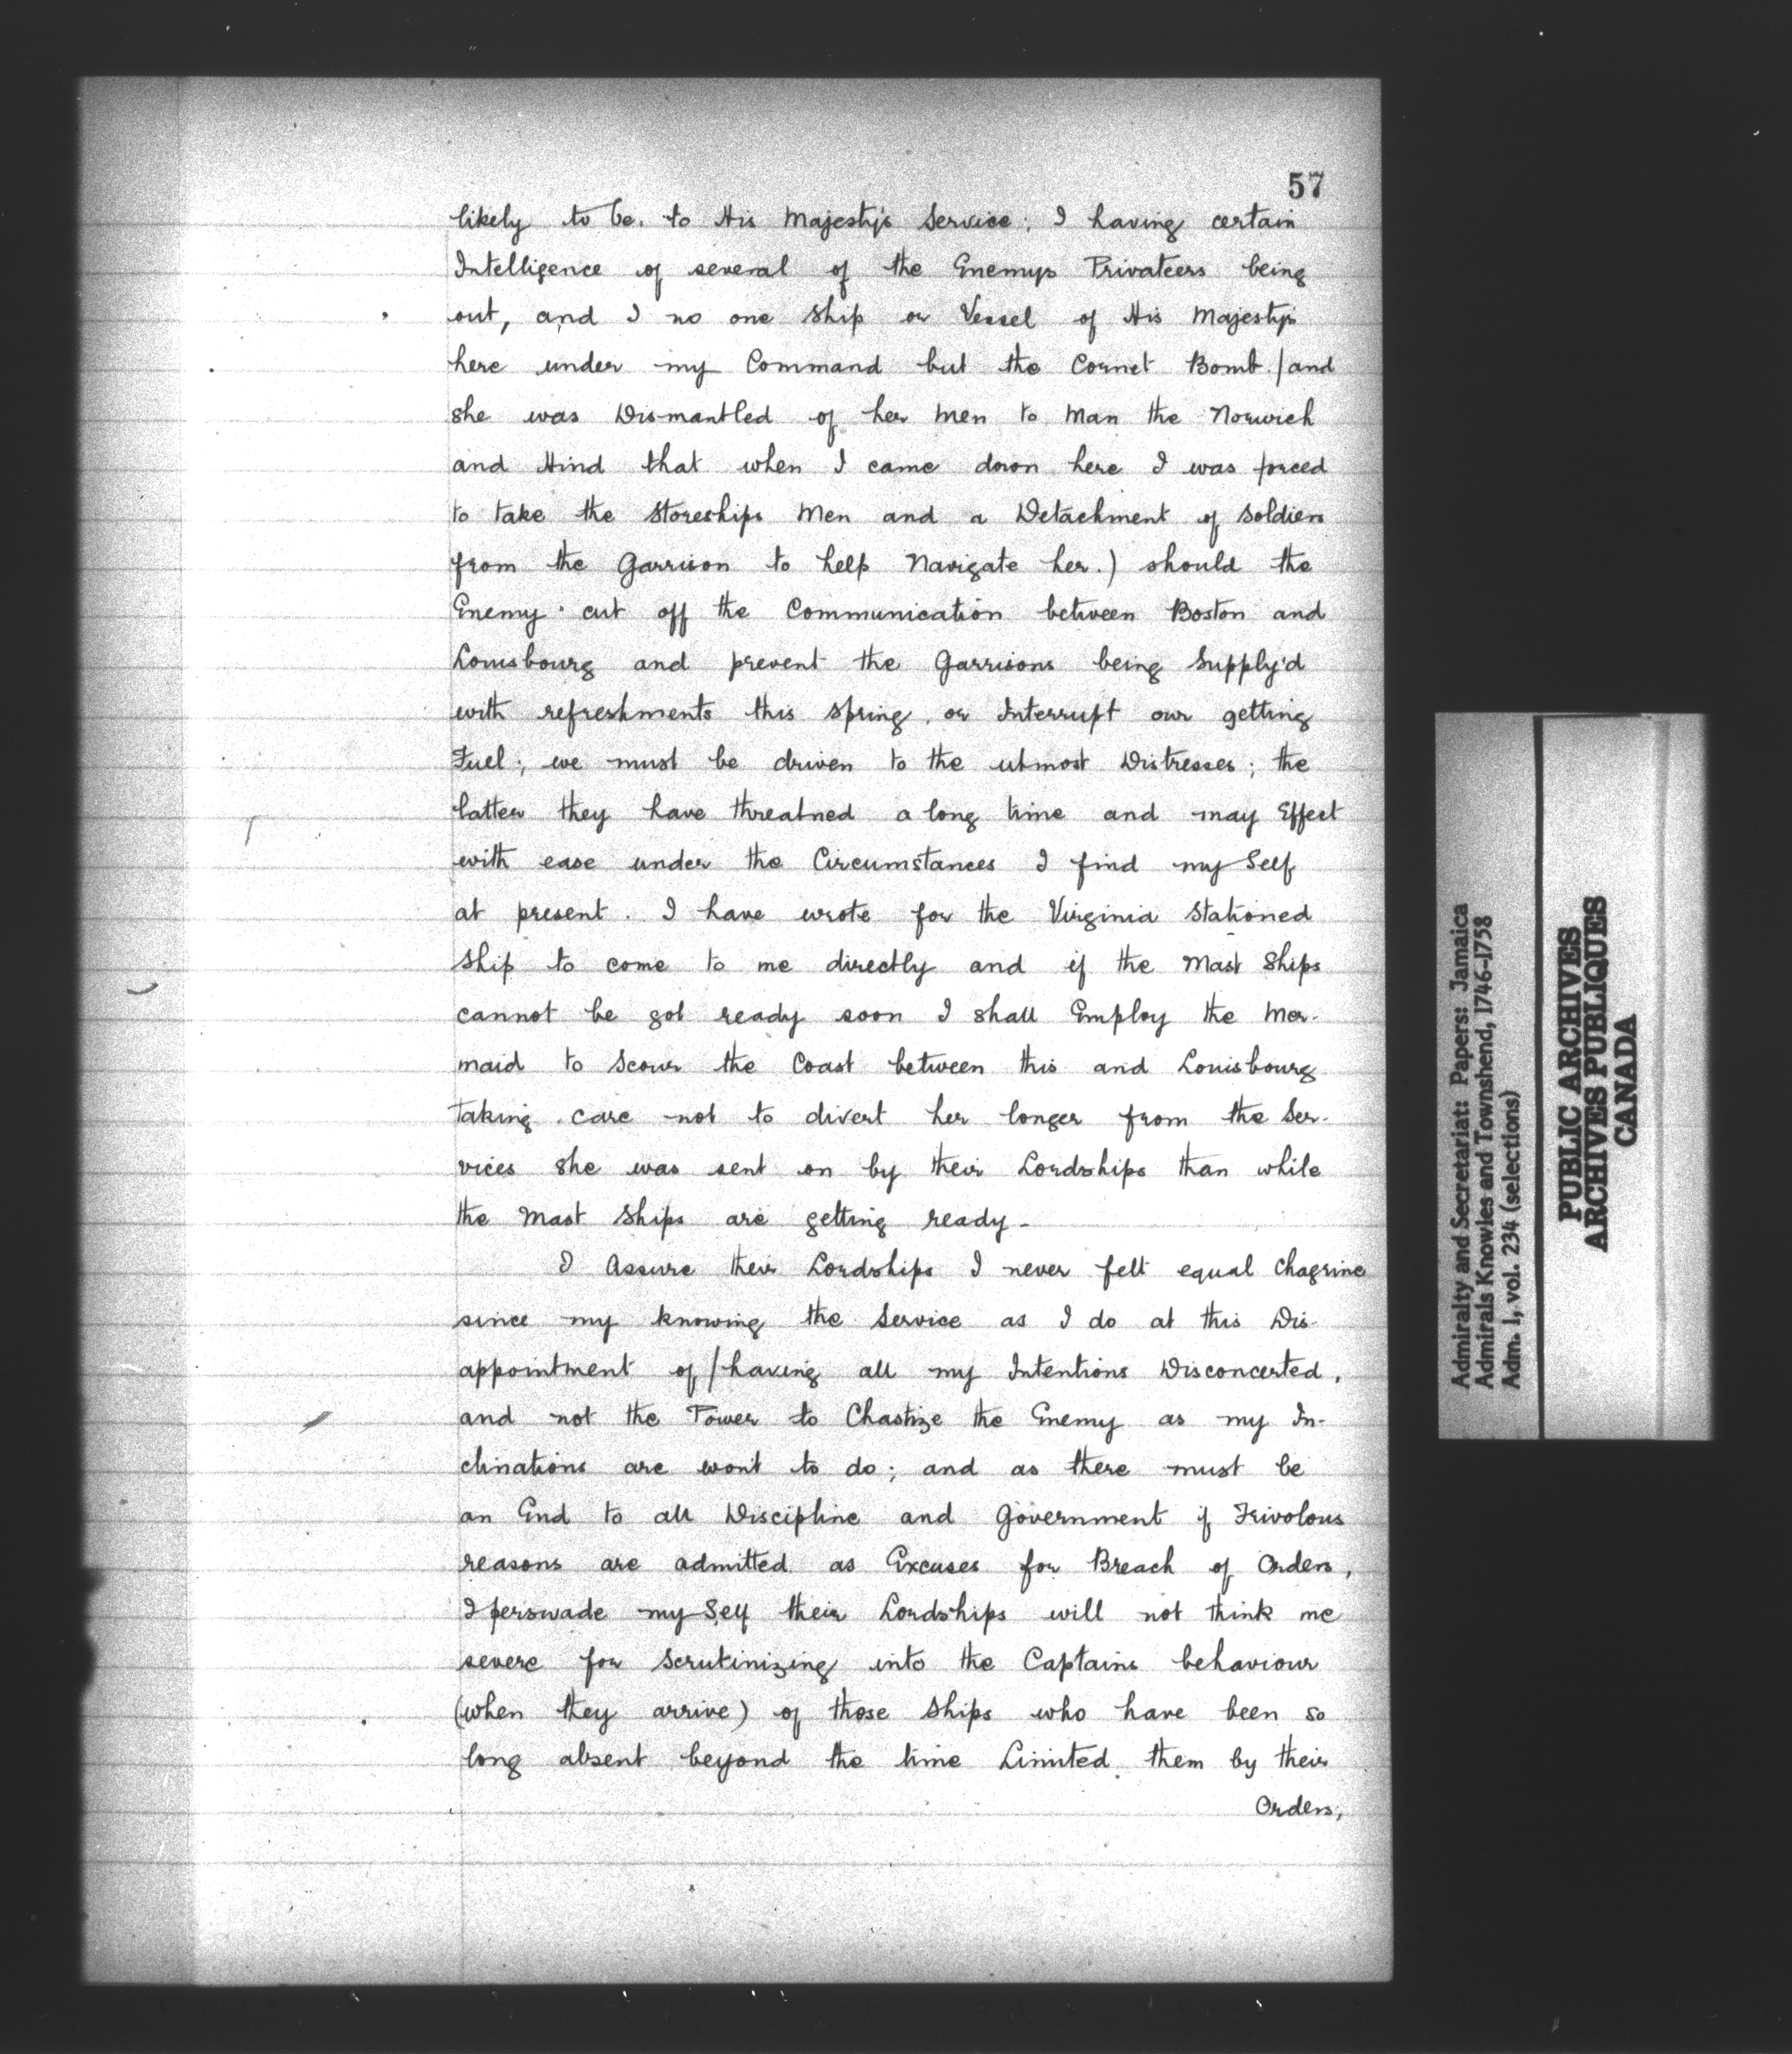 57
likely to be. to His Majesty's Service; I having certain
Intelligence of several of the Enemys Privateers being
out, and I no one Ship or Vessel of His Majestys
here under my Command but the Comet Bomb./and
she was Dismantled of her Men to Man the Norwich
and Hind that when I came down here I was forced
to take the Storeships Men and a Detachment of Soldiers
from the Garrison to help Navigate her.) should the
Enemy cut off the Communication between Boston and
Louisbourg and prevent the Garrisons being Supply'd
with refreshments this Spring, or Interrupt our getting
Fuel; we must be driven to the utmost Distresses; the
latter they have threatned a long time and may Effect
with ease under the Circumstances I find my Self
at present. I have wrote for the Virginia Stationed
Ship to come to me directly and if the Mast Ships
cannot be got ready soon I shall Employ the Mer-
maid to Scour the Coast between this and Louisbourg
taking care not to divert her longer from the Ser-
vices she was sent on by their Lordships than while
the Mast Ships are getting ready-
I Assure their Lordships I never felt equal Chagrine
since my knowing the Service as I do at this Dis-
appointment of/having all my Intentions Disconcerted,
and not the Power to Chastize the Enemy as my In-
clinations are wont to do; and as there must be
an End to all Discipline and Government if Frivolous
reasons are admitted as Excuses for Breach of Orders,
I perswade my Self their Lordships will not think me
severe for Scrutinizing into the Captains behaviour
(when they arrive) of those Ships who have been so
long absent beyond the time Limited them by their
Orders,
Admiralty and Secretariat: Papers: Jamaica
Admirals Knowles and Townshend, 1746-1758
Adm. 1, vol. 234 (selections)
PUBLIC ARCHIVES
ARCHIVES PUBLIQUES
CANADA